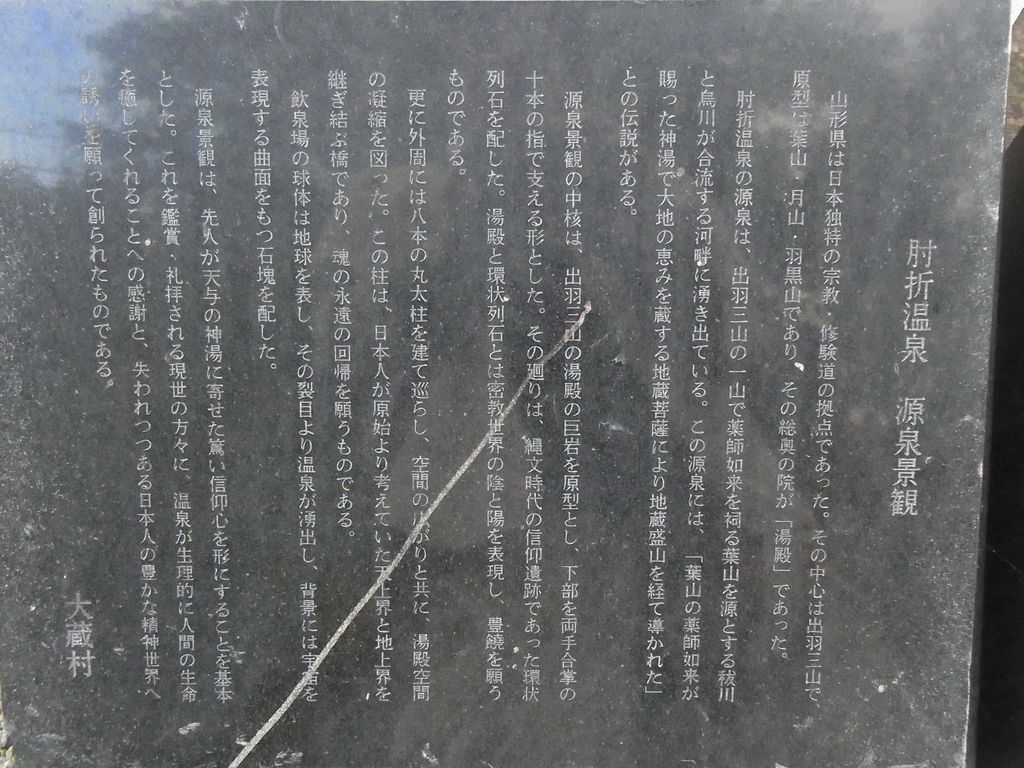 肘折温泉　源泉景観
山形県は日本独特の宗教・修験道の拠点であった。その中心は出羽三山で、
原型は葉山・月山・羽黒山であり、その総奥の院が「湯殿」であった。
肘折温泉の源泉は、出羽三山の一山で薬師如来を祠る葉山を源とする秡川
と烏川が合流する河畔に湧き出ている。この源泉には、「葉山の薬師如来が
賜った神湯で大地の恵みを蔵する地蔵菩薩により地蔵盛山を経て導かれた」
との伝説がある。
源泉景観の中核は、出羽三山の湯殿の巨岩を原型とし、下部を両手合掌の
十本の指で支える形とした。その廻りは、縄文時代の信仰遺跡であった環状
列石を配した。湯殿と環状列石とは密教世界の陰と陽を表現し、豊饒を願う
ものである。
更に外周には八本の丸太柱を建て巡らし、空間の広がりと共に、湯殿空間
の凝縮を図った。この柱は、日本人が原始より考えていた天上界と地上界を
継ぎ結ぶ橋であり、魂の永遠の回帰を願うものである。
飲泉場の球体は地球を表し、その裂目より温泉が湧出し、背景には宇宙を
表現する曲面をもつ石塊を配した。
源泉景観は、先人が天与の神湯に寄せた篤い信仰心を形にすることを基本
とした。これを鑑賞・礼拝される現世の方々に、温泉が生理的に人間の生命
を癒してくれることへの感謝と、失われつつある日本人の豊かな精神世界へ
の誘いを願って創られたものである。
大蔵村